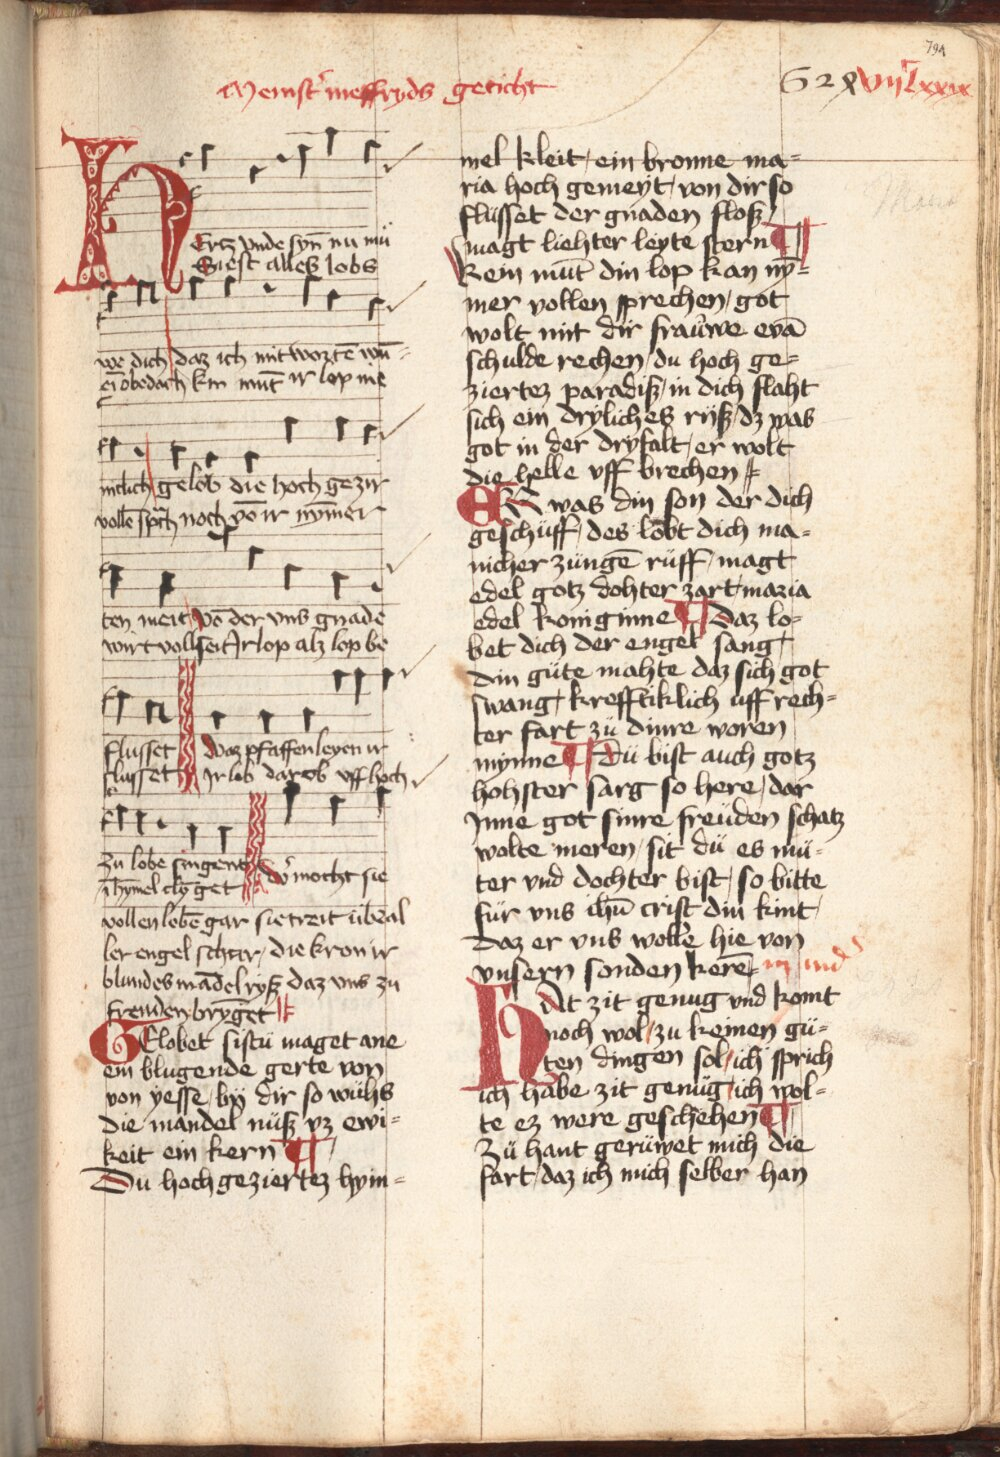 794
Meinst' meffryds geticht
628 viijᶜ lxxix
HErtz vnde syn nu mü
Giest alles lobs
we dich daz ich mit wortē wū=
ei obedach kin mūt ir lop nie
nclich gelob die hoch gezir
volle sprch noch vō ir nȳmer
ten meit vō der vns gnade
wirt vollseit Ir lop alz lop be
flusset Daz pfaffen leyen ir
slusset Ir lob dar ob vff hoch
zu lobe singent d' mocht sie
ī hymel clȳget
vollen lobē gar sie treit übeal
ler engel schar / die kron ir
blundes mādel ryß daz vns zu
freuden brȳget
GElobet sistu maget ane
ein blugende gerte von
von yesse / by dir so wühs
die mandel nuß vz ewi=
keit ein kern
Du hoch gezierter hym=
mel kleit / ein bronne ma=
ria hoch gemeyt / von dir so
flüsset der gnaden floß /
magt liehter leyte stern
Kein mūt din lop kan ny=
mer vollen sprechen / got
wolt mit dir frauwe eva
schulde rechen / du hoch ge=
ziertez paradiß / in dich slaht
sich ein dryliches ryß / dz was
got in der dryfalt / er wolt
die helle vff brechen
ER was din son der dich
geschüff / des lobt dich ma=
nicher züngē rüff / magt
edel gotz dohter zart / maria
edel koniginne Daz lo=
bet dich der engel sang /
din güte mahte daz sich got
swang / krefftiklich uff rech=
ter fart zü dinre woren
mynne Du bist auch gotz
hohster sarg so here / dar
Inne got sinre freüden schatz
wolte meren / sit dü es mü=
ter vnd dochter bist / so bitte
für vns ihū crist din kint /
Daz er vns wolle hie von
vnsern sonden kerē
HAt zit genug vnd komt
noch wol / zu keinen gü=
ten dingen sol / ich sprich
ich habe zit genüg / ich wol=
te ez were geschehen
Zü hant gerüwet mich die
fart / daz ich mich selber han